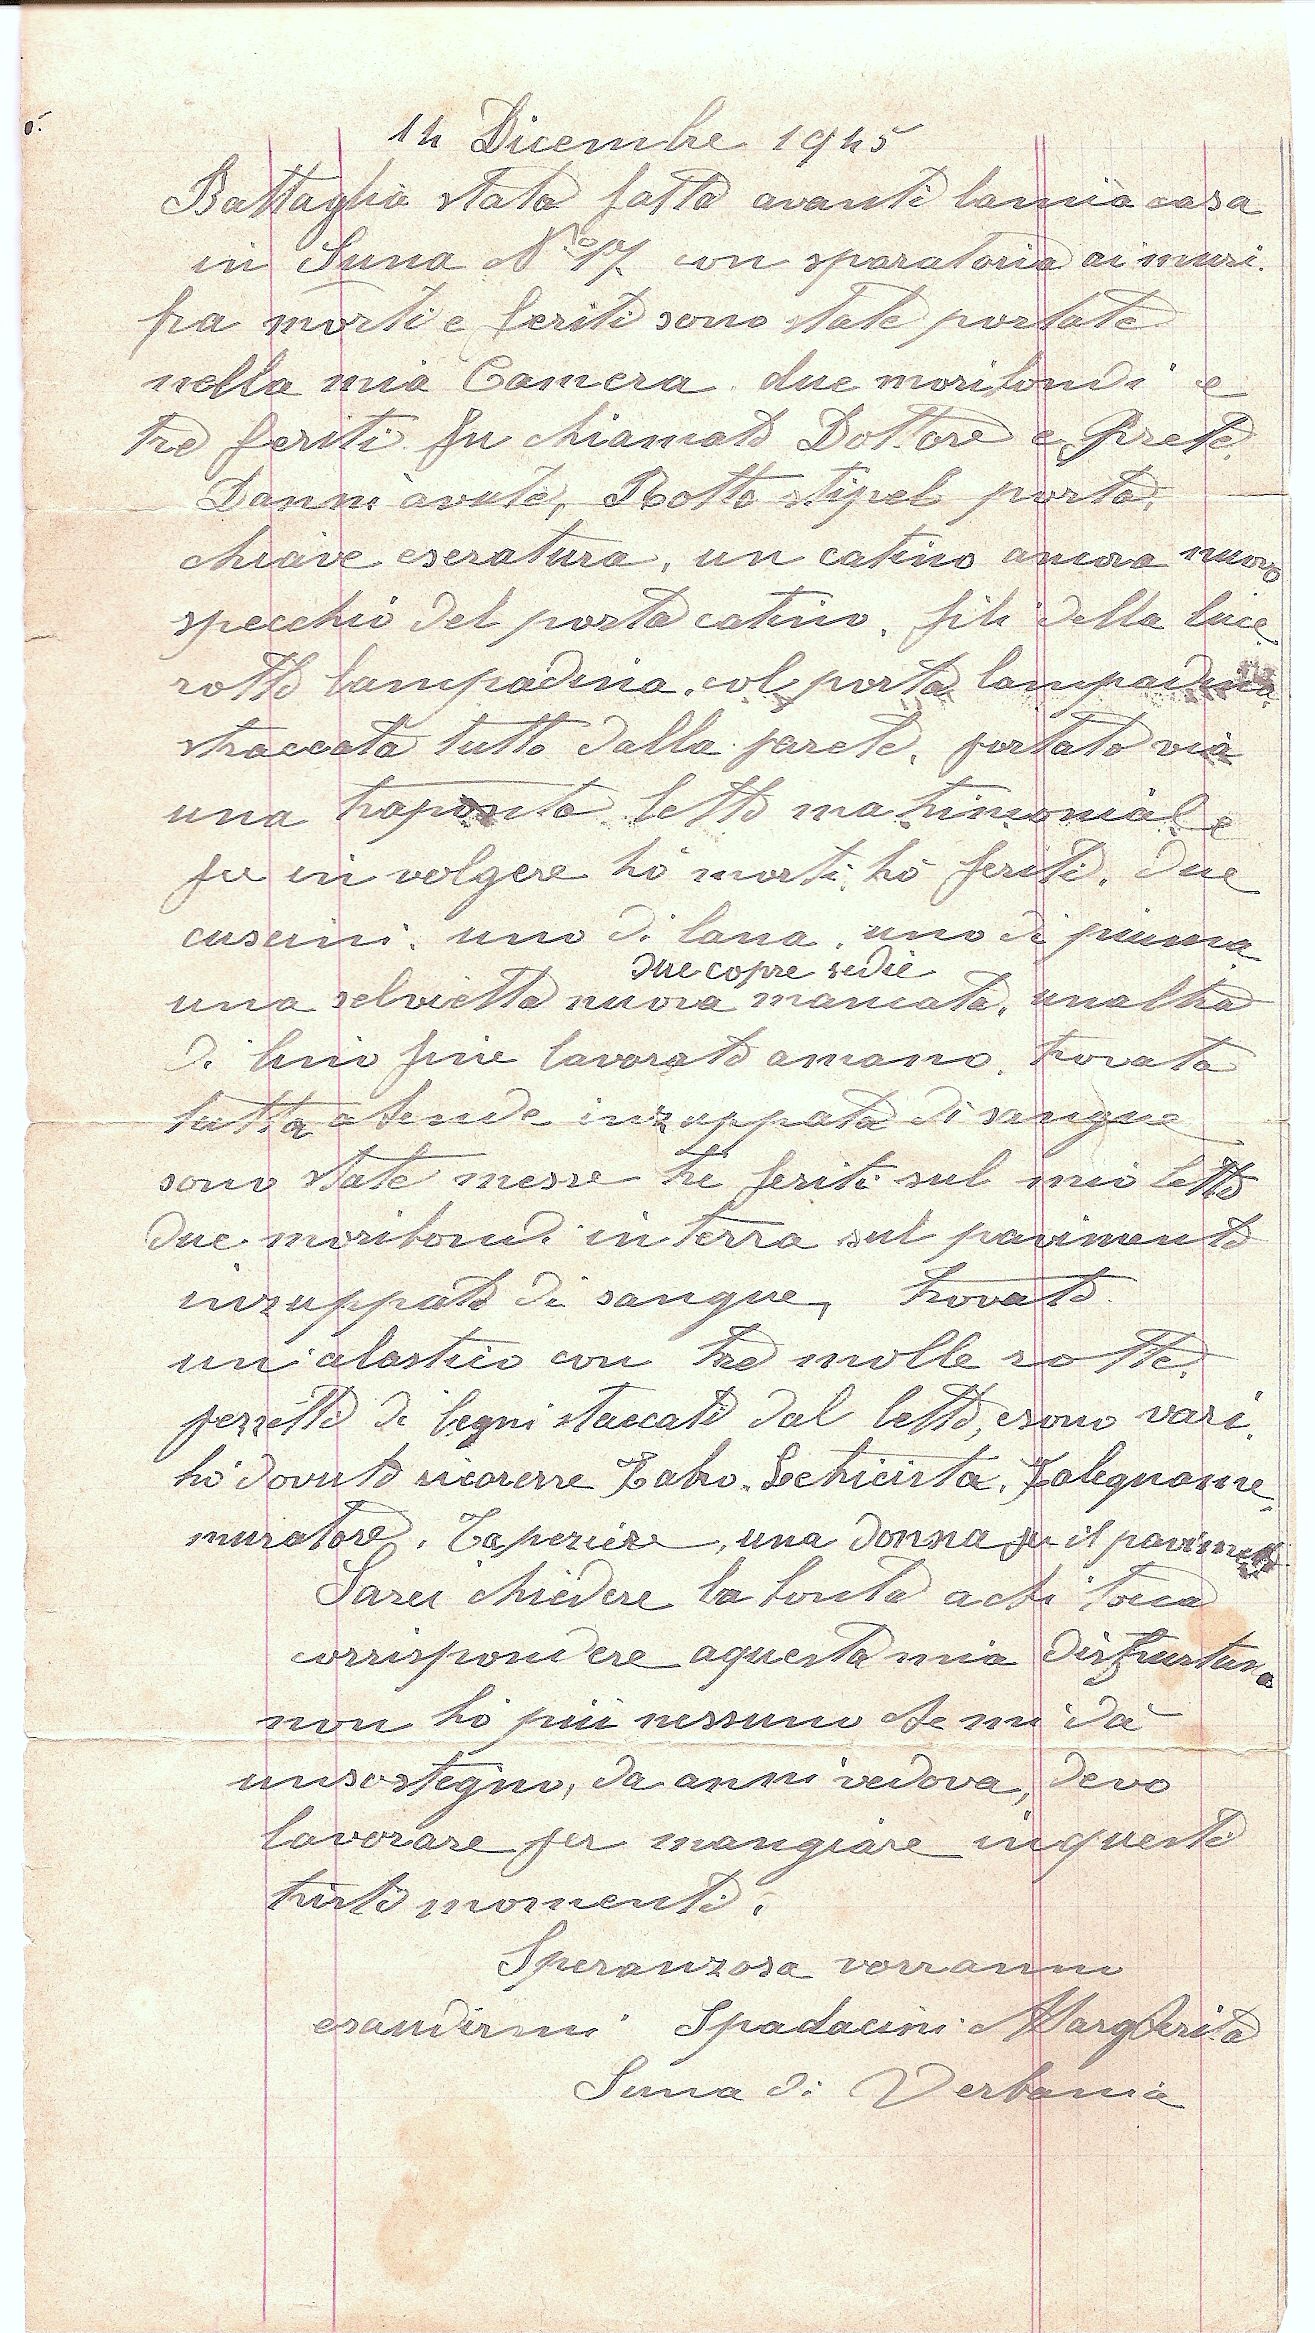 14 Dicembre 1945
Battaglia stata fatta avanti lamia casa
in Suna N° 17. con sparatoria ai muri.
fra morti e feriti sono state portate
nella mia Camera. due moribondi e
tre feriti fu chiamato Dottore e Prete.
Danni avute, Rotto stipel porta,
chiave eseratura, un catino ancora nuovo
specchio del porta catino. fili della luce
rotto lampadina. col porta lampadina
straccata tutto dalla parete, portato via
una traponta letto matrimoniale
fu in volgere hò morti hò feriti. due
cuscini. uno di lana, uno di piuma
due copre sedie
una selvietta nuova mancata, unaltra
di lino fine lavorato amano, trovata
tutta inzuppata di sangue
sono state messe tre feriti sul mio letto
due moribondi in terra sul pavimento
inzuppato di sangue, trovato
un alastico con tre molle rotte.
ferretti di legni staccati dal letto, esono vari.
hò dovuto ricorerre Fabro. Letricista. Falegname.
muratore. Taperiere, una donna il pavimento
Sarei chiedere la bontà achi toca
corrispondere aquesta mia
non hò più nessuno che mi dà
unsostegno, da anni vedova, devo
lavorare per mangiare inquesti
tristi momenti.
Speranzosa vorranno
esaudirmi Spadacini Margherita
Suna di Verbania